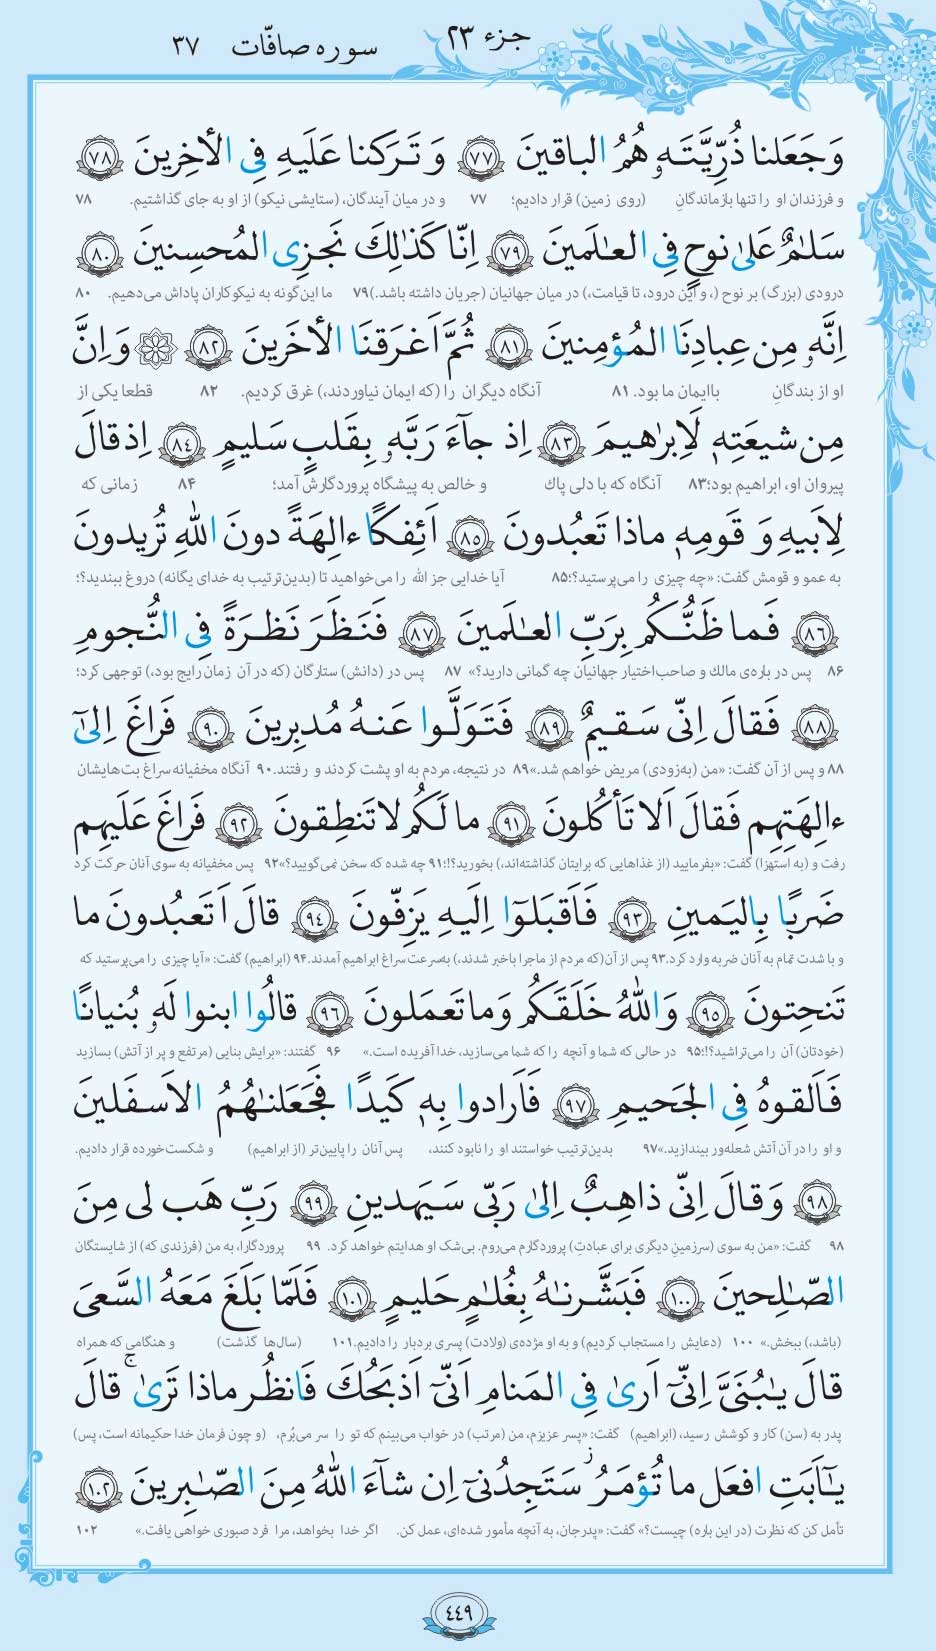 جزء ۲۳ سوره صافّات ۳۷
وَ جَعَلنا ذُرِّیَّتَهٗ هُمُ الباقینَ ﴿۷۷﴾ وَ تَرَکنا عَلَیهِ فِی الأخِرینَ ﴿۷۸﴾
و فرزندان او را تنها بازماندگانِ (روی زمین) قرار دادیم؛ ۷۷ و در میان آیندگان، (ستایشی نیکو) از او به جای گذاشتیم. ۷۸
سَلٰمٌ عَلیٰ نوحٍ فِی العٰلَمینَ ﴿۷۹﴾ اِنّا کَذٰلِكَ نَجزِی المُحسِنینَ ﴿۸۰﴾
درودی (بزرگ) بر نوح (، و این درود، تا قیامت،) در میان جهانیان (جریان داشته باشد.) ۷۹ ما این‌گونه به نیکوکاران پاداش می‌دهیم. ۸۰
اِنَّهٗ مِن عِبادِنَا المُؤمِنینَ ﴿۸۱﴾ ثُمَّ اَغرَقنَا الأخَرینَ ﴿۸۲﴾ ۞ وَ اِنَّ
او از بندگانِ باایمان ما بود. ۸۱ آنگاه دیگران را (که ایمان نیاوردند،) غرق کردیم. ۸۲ قطعا یکی از
مِن شیعَتِهٖ لَاِبرٰهیمَ ﴿۸۳﴾ اِذ جآءَ رَبَّهٗ بِقَلبٍ سَلیمٍ ﴿۸۴﴾ اِذ قالَ
پیروان او، ابراهیم بود؛ ۸۳ آنگاه که با دلی پاك و خالص به پیشگاه پروردگارش آمد؛ ۸۴ زمانی که
لِاَبیهِ وَ قَومِهٖ ماذا تَعبُدونَ ﴿۸۵﴾ اَئِفکًا ءالِهَةً دونَ اللّٰهِ تُریدونَ
به عمو و قومش گفت: «چه چیزی را می‌پرستید؟؛ ۸۵ آیا خدایی جز الله را می‌خواهید تا (بدین‌ترتیب به خدای یگانه) دروغ ببندید؟؛
﴿۸۶﴾ فَما ظَنُّکُم بِرَبِّ العٰلَمینَ ﴿۸۷﴾ فَنَظَرَ نَظرَةً فِی النُّجومِ
۸۶ پس در باره‌ی مالك و صاحب‌اختیار جهانیان چه گمانی دارید؟» ۸۷ پس در (دانش) ستارگان (که در آن زمان رایج بود،) توجهی کرد؛
﴿۸۸﴾ فَقالَ اِنّی سَقیمٌ ﴿۸۹﴾ فَتَوَلَّوا عَنهُ مُدبِرینَ ﴿۹۰﴾ فَراغَ اِلیٰٓ
۸۸ و پس از آن گفت: «من (به‌زودی) مریض خواهم شد.» ۸۹ در نتیجه، مردم به او پشت کردند و رفتند. ۹۰ آنگاه مخفیانه سراغ بت‌هایشان
ءالِهَتِهِم فَقالَ اَلا تَأکُلونَ ﴿۹۱﴾ ما لَکُم لا تَنطِقونَ ﴿۹۲﴾ فَراغَ عَلَیهِم
رفت و (به استهزا) گفت: «بفرمایید (از غذاهایی که برایتان گذاشته‌اند،) بخورید؟!؛ ۹۱ چه شده که سخن نمی‌گویید؟» ۹۲ پس مخفیانه به سوی آنان حرکت کرد
ضَربًا بِالیَمینِ ﴿۹۳﴾ فَاَقبَلوٓا اِلَیهِ یَزِفّونَ ﴿۹۴﴾ قالَ اَتَعبُدونَ ما
و با شدت تمام به آنان ضربه وارد کرد. ۹۳ پس از آن (که مردم از ماجرا باخبر شدند،) به‌سرعت سراغ ابراهیم آمدند. ۹۴ (ابراهیم) گفت: «آیا چیزی را می‌پرستید که
تَنحِتونَ ﴿۹۵﴾ وَ اللّٰهُ خَلَقَکُم وَ ما تَعمَلونَ ﴿۹۶﴾ قالُوا ابنوا لَهٗ بُنیانًا
(خودتان) آن را می‌تراشید؟!؛ ۹۵ در حالی که شما و آنچه را که شما می‌سازید، خدا آفریده است.» ۹۶ گفتند: «برایش بنایی (مرتفع و پر از آتش) بسازید
فَاَلقوهُ فِی الجَحیمِ ﴿۹۷﴾ فَاَرادوا بِهٖ کَیدًا فَجَعَلنٰهُمُ الاَسفَلینَ
و او را در آن آتش شعله‌ور بیندازید.» ۹۷ بدین‌ترتیب خواستند او را نابود کنند، پس آنان را پایین‌تر (از ابراهیم) و شکست‌خورده قرار دادیم.
﴿۹۸﴾ وَ قالَ اِنّی ذاهِبٌ اِلیٰ رَبّی سَیَهدینِ ﴿۹۹﴾ رَبِّ هَب لی مِنَ
۹۸ گفت: «من به سوی (سرزمینِ دیگری برای عبادتِ) پروردگارم می‌روم. بی‌شک او هدایتم خواهد کرد. ۹۹ پروردگارا، به من (فرزندی که) از شایستگان
الصّٰلِحینَ ﴿۱۰۰﴾ فَبَشَّرنٰهُ بِغُلٰمٍ حَلیمٍ ﴿۱۰۱﴾ فَلَمّا بَلَغَ مَعَهُ السَّعیَ
(باشد،) ببخش.» ۱۰۰ (دعایش را مستجاب کردیم) و به او مژده‌ی (ولادت) پسری بردبار را دادیم. ۱۰۱ (سال‌ها گذشت) و هنگامی که همراه
قالَ یٰبُنَیَّ اِنّیٓ اَریٰ فِی المَنامِ اَنّیٓ اَذبَحُكَ فَانظُر ماذا تَریٰۚ قالَ
پدر به (سن) کار و کوشش رسید، (ابراهیم) گفت: «پسر عزیزم، من (مرتب) در خواب می‌بینم که تو را سر می‌بُرم، (و چون فرمان خدا حکیمانه است، پس)
یٰٓاَبَتِ افعَل ما تُؤمَرُۖ سَتَجِدُنیٓ اِن شآءَ اللّٰهُ مِنَ الصّٰبِرینَ ﴿۱۰۲﴾
تأمل کن که نظرت (در این باره) چیست؟» گفت: «پدرجان، به آنچه مأمور شده‌ای، عمل کن. اگر خدا بخواهد، مرا فرد صبوری خواهی یافت.» ۱۰۲
۴۴۹